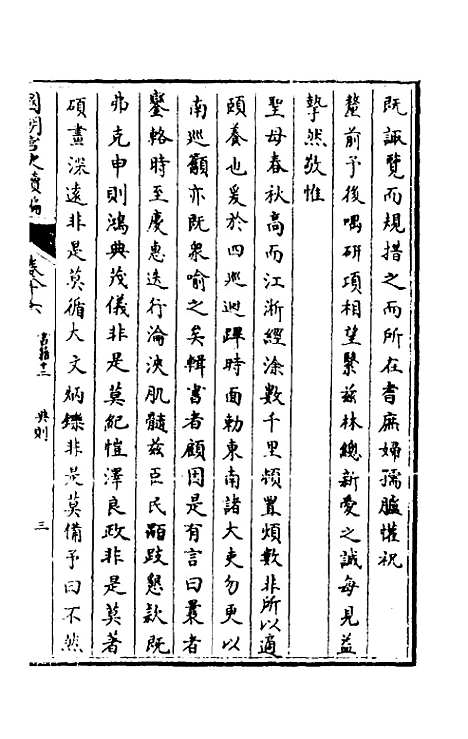 既諏覽而規措之而所在耆庶婦孺臚懽祝
釐前予後喁研項相望繄茲林總新愛之誠每見益
摯然敬惟
聖母春秋高而江浙經涂數千里頻置煩數非所以適
頤養也爰於四巡迴蹕時面勅東南諸大吏勿更以
南巡籲亦既衆喻之矣輯書者顧因是有言曰曩者
鑾輅時至慶惠迭行淪浹肌髓茲臣民踊跂懇款既
弗克申則鴻典茂儀非是莫紀愷澤良政非是莫著
碩畫深遠非是莫循大文炳鑠非是莫備予曰不然
國朝宮史續編
卷八十六
書籍十二
典則
三